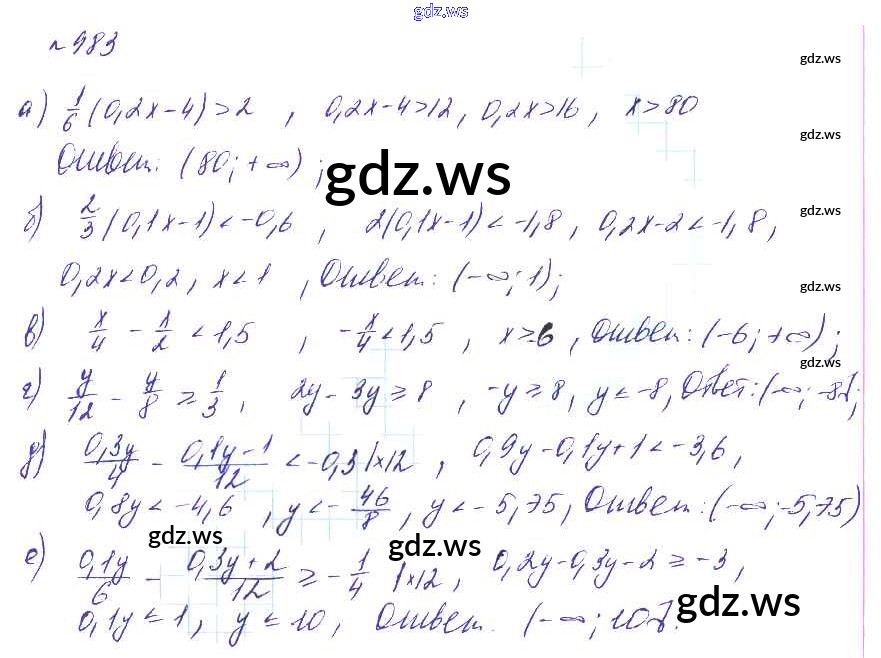 gdz.ws
№ 983
gdz.ws
а) 1/6 (0,2x-4) > 2 , 0,2x-4>12, 0,2x>16, x>80
gdz.ws
Ответ: (80; +∞) ;
gdz.ws
б) 2/3 (0,1x-1) < -0,6 , 2(0,1x-1) < -1,8, 0,2x-2 < -1,8,
gdz.ws
0,2x<0,2, x<1 , Ответ: (-∞; 1);
gdz.ws
в) x/4 - x/2 < 1,5 , -x/4 < 1,5 , x>-6 , Ответ: (-6; +∞) ;
gdz.ws
г) y/12 - y/8 ≥ 1/3 , 2y - 3y ≥ 8 , -y ≥ 8, y ≤ -8, Ответ: (-∞; -8];
gdz.ws
д) 0,3y/4 - 0,1y-1/12 < -0,3 |×12 , 0,9y-0,1y+1 < -3,6,
0,8y < -4,6 , y < - 46/8 , y < -5,75, Ответ: (-∞; -5,75)
gdz.ws
gdz.ws
е) 0,1y/6 - 0,3y+2/12 ≥ -1/4 |×12, 0,2y-0,3y-2 ≥ -3,
gdz.ws
0,1y ≤ 1, y ≤ 10, Ответ. (-∞; 10].